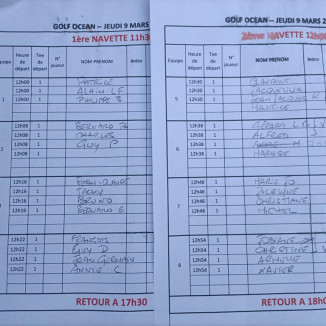 GOLF OCEAN -- JEUDI 9 MARS
1ère NAVETTE 11h3
Equipe Heure de départ Tee de départ N° joueur NOM PRENOM Index
12h00 1 PATRICE
12h00 1 ALAIN LF
12h00 1 PHILIPPE B
12h00 1
12h08 1 BERNARD
12h08 1 CHARLES
12h08 1 GUY P
12h08 1
12h16 1 JEAN-CLAUDE
12h16 1
12h16 1 BRUNO
12h16 1 BERNARD E
12h22 1 FRANÇOIS
12h22 1 GUY D
12h22 1 JEAN GERMAIN
12h22 1 ANNIE C
RETOUR A 17h30
GOLF OCEAN -- JEUDI 9 MARS 2
2ème NAVETTE 12h0
Equipe Heure de départ Tee de départ N° joueur NOM PRENOM
5
12h30 1
12h30 1 JACQUELINE
12h30 1 JEAN JACQUES
12h30 1 MAURICE
6
12h38 1 GERARD L
12h38 1 ALFRED
12h38 1
12h38 1 MARYSE
7
12h46 1 MARIE
12h46 1
12h46 1 CHRISTIANE
12h46 1 MICHEL
8
12h54 1 JOSIANE
12h54 1 CHRISTINE
12h54 1
12h54 1 XAVIER
RETOUR A 18h0